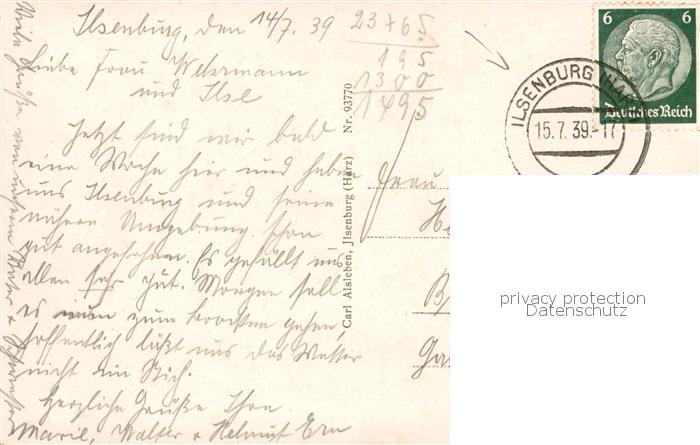 Ilsenburg, den 14/7. 39
Liebe Frau Wehrmann
und Ilse
Jetzt sind wir bald
eine Woche hier und haben
uns Ilsenburg und seine
nähere Umgebung schon
gut angesehen. Es gefällt uns
allen sehr gut. Morgen soll
es nun zum Brocken gehen,
hoffentlich läßt uns das Wetter
nicht im Stich.
Herzliche Grüße Ihre
Marie, Walter + Helmut
Viele Grüße von
23 + 65
195
1300
1495
Carl Alsleben, Jlsenburg (Harz) Nr. 93770
ILSENBURG (HARZ)
15.7.39.-17
6 6
Deutsches Reich
Frau
privacy protection
Datenschutz